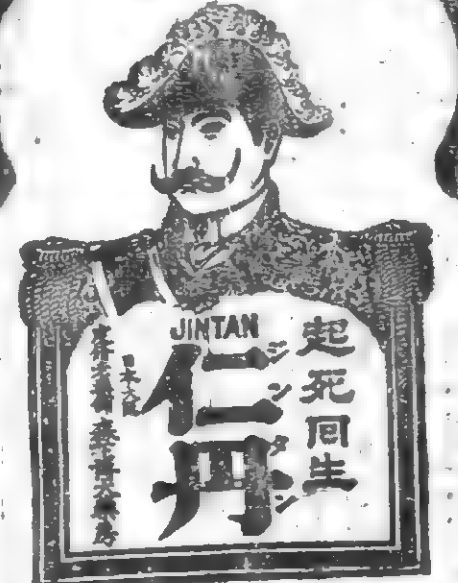 JINTAN
起死回生
ジンタン
仁丹
日本大阪